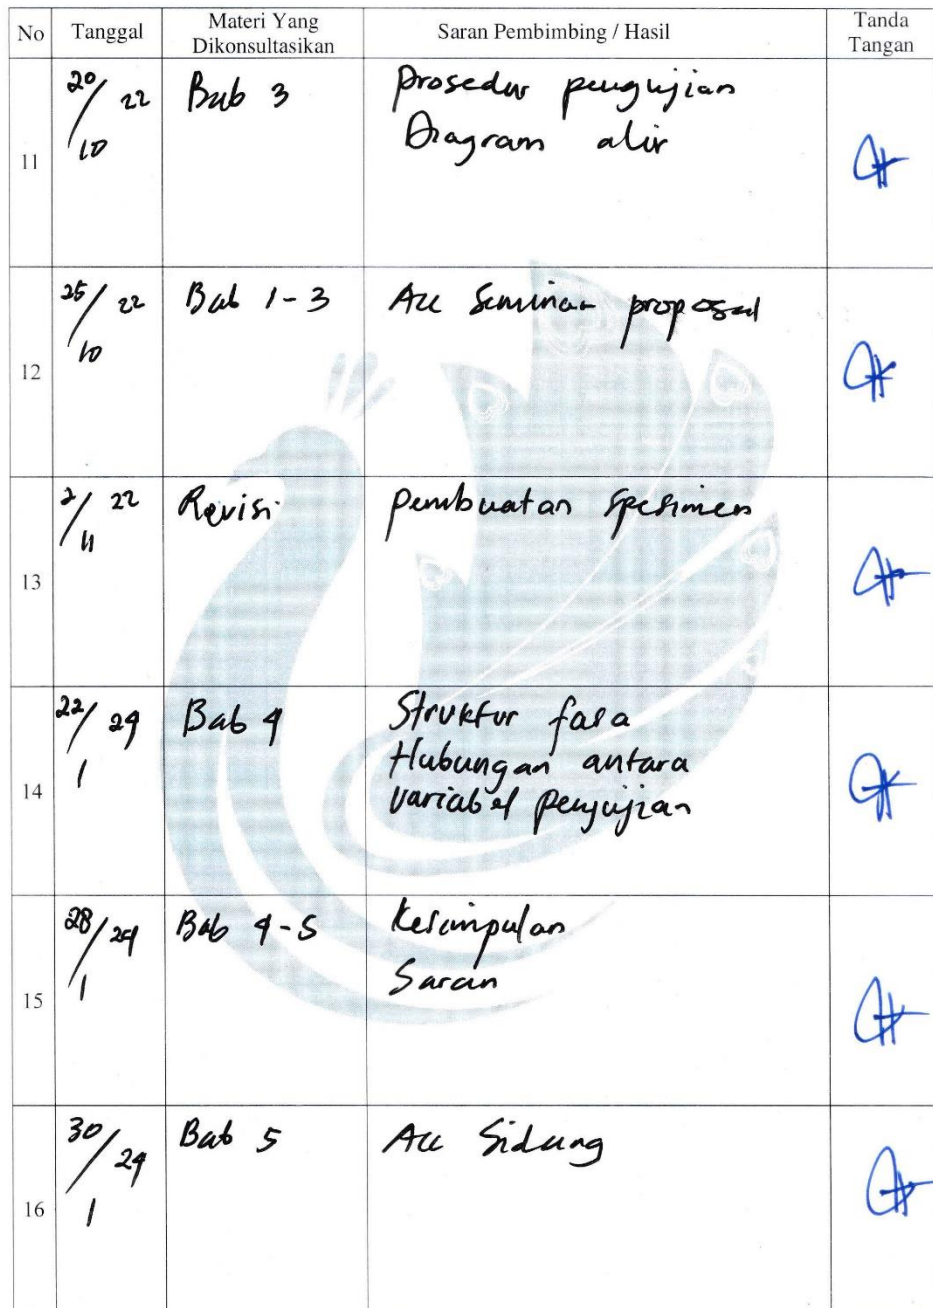 No Tanggal Materi Yang Dikonsultasikan Saran Pembimbing / Hasil Tanda Tangan
11 20/10 22 Bab 3 Prosedur pengujian
Diagram alir
12 25/10 22 Bab 1-3 Acc Seminar proposal
13 2/11 22 Revisi Pembuatan Spesimen
14 22/1 24 Bab 4 Struktur fasa
Hubungan antara
variabel pengujian
15 28/1 24 Bab 4-5 Kesimpulan
Saran
16 30/1 24 Bab 5 Acc Sidang